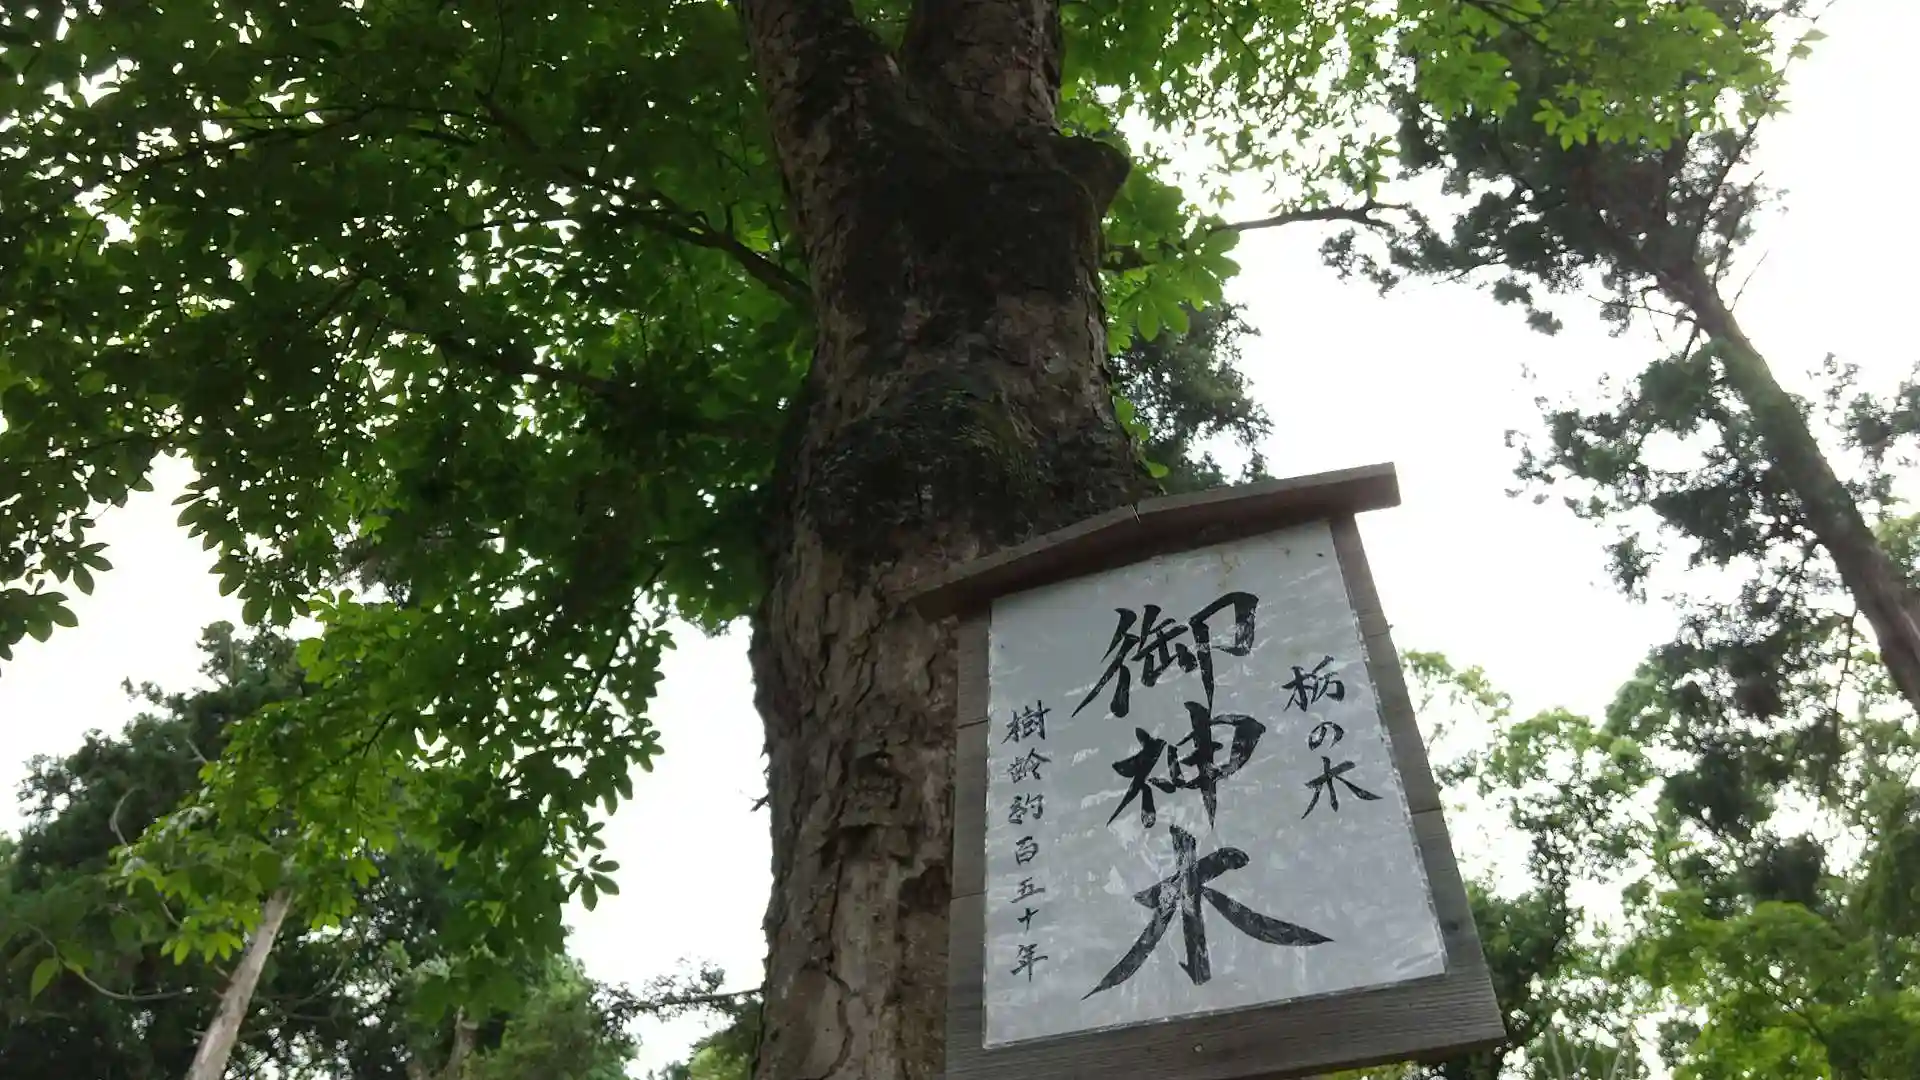 栃の木
御神木
樹齢約百五十年